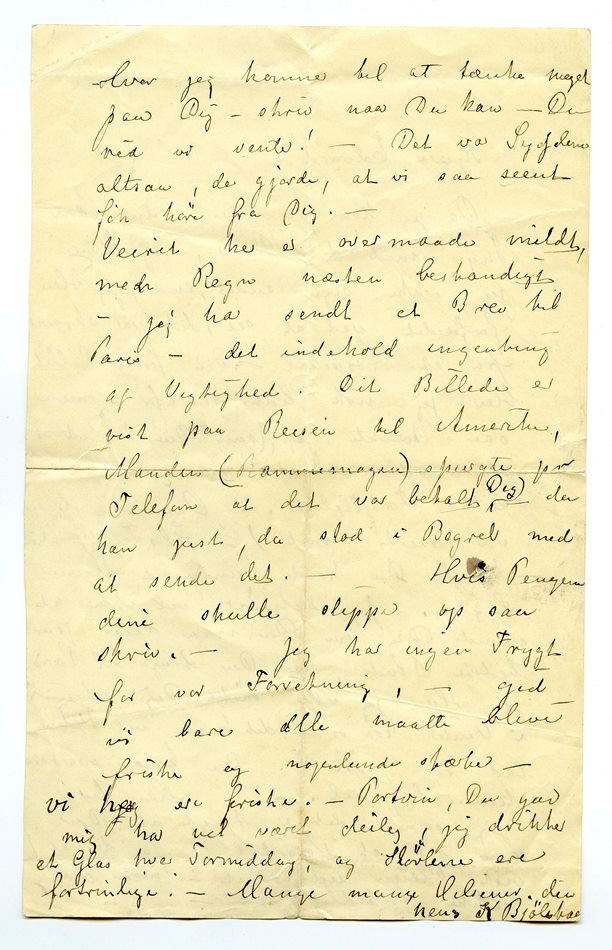 Hvor jeg komme til at tænke meget
paa Dig – skriv naa Du kan – Du
ved vi vente! – Det va Sygdom
altsaa, de gjorde, at vi saa seent
fik höre fra Dig. –
Veirit he er overmaade mildt,
med Regn næsten bestandigt
– jeg ha sendt et Brev til
Paris – det indehold ingenting
af Vigtighed. Dit Billede er
vist paa Reisen til Amerika,
Manden (Rammemagen) spurgte pr
Telefon at det var betalt Dig) da
han just, da stod i Begreb med
at sende det. – Hvis Pengene
dine skulle slippe op saa
skriv. – Jeg har ingen Frygt
for vor Forretning, – gid
vi bare alle maatte blive
friske og nogenlunde stærke –
vi er friske. – Portvin, Du gav
mig ha vel været deilig, jeg drikker
et Glas hver Formiddag, og Stövlene ere
fortrinlige! – Mange mange Hilsener, din
hens K Bjölstad